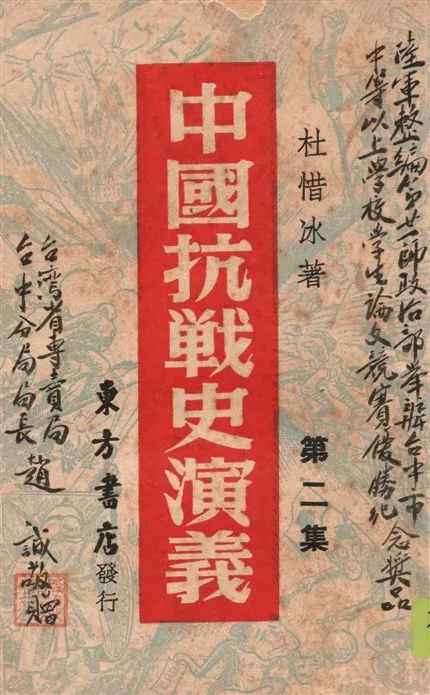 陸軍整編第廿一師政治部舉辦台中市
中等以上學校學生論文競賽優勝紀念獎品
杜惜冰著
第二集
中國抗戦史演義
東方書店發行
台灣省專賣局
台中分局局長 趙 誠敬贈